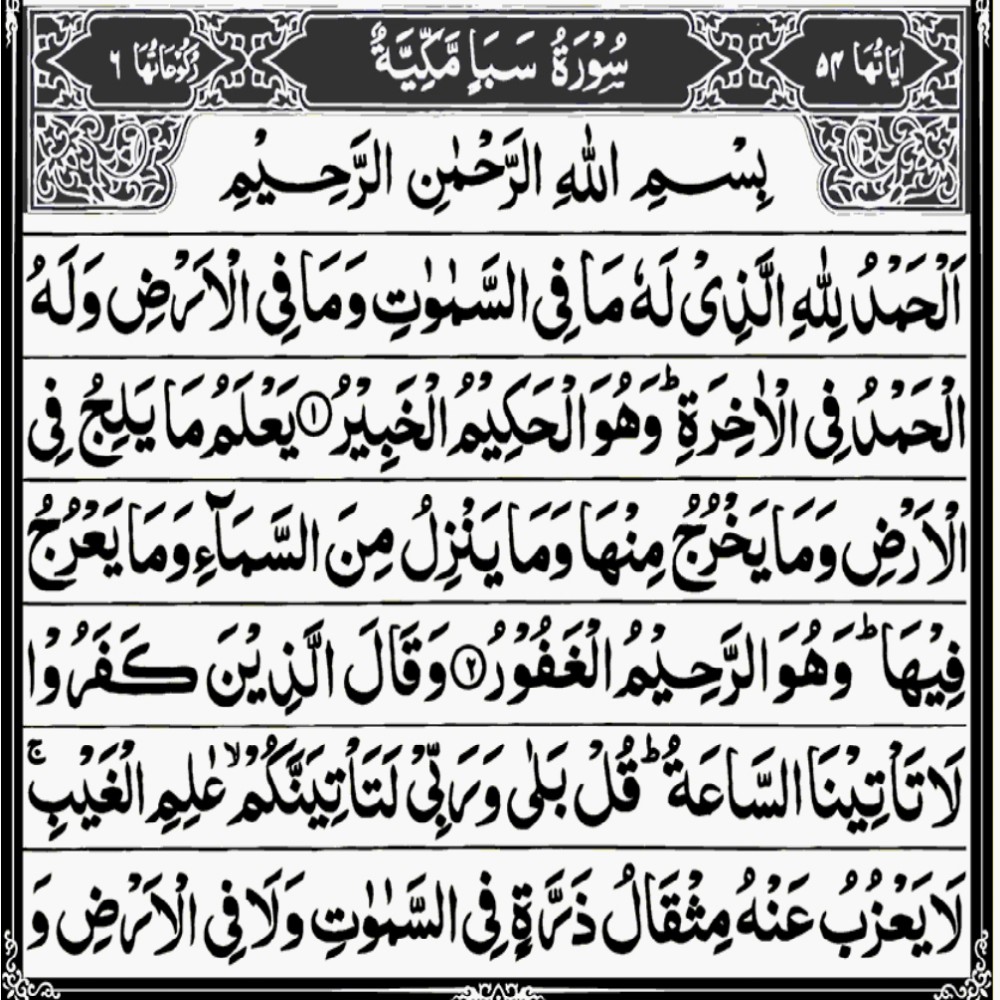 اٰيَاتُهَا ٥٤ سُوْرَةُ سَبَاٍ مَّكِّيَّةٌ رُكُوْعَاتُهَا ٦
بِسْمِ اللهِ الرَّحْمٰنِ الرَّحِيْمِ
اَلْحَمْدُ لِلّٰهِ الَّذِىْ لَهٗ مَا فِى السَّمٰوٰتِ وَمَا فِى الْاَرْضِ وَلَهُ
الْحَمْدُ فِى الْاٰخِرَةِ ؕ وَهُوَ الْحَكِيْمُ الْخَبِيْرُ ① يَعْلَمُ مَا يَلِجُ فِى
الْاَرْضِ وَمَا يَخْرُجُ مِنْهَا وَمَا يَنْزِلُ مِنَ السَّمَآءِ وَمَا يَعْرُجُ
فِيْهَا ؕ وَهُوَ الرَّحِيْمُ الْغَفُوْرُ ② وَقَالَ الَّذِيْنَ كَفَرُوْا
لَا تَاْتِيْنَا السَّاعَةُ ؕ قُلْ بَلٰى وَرَبِّىْ لَتَاْتِيَنَّكُمْ ۙ عٰلِمِ الْغَيْبِ ۚ
لَا يَعْزُبُ عَنْهُ مِثْقَالُ ذَرَّةٍ فِى السَّمٰوٰتِ وَلَا فِى الْاَرْضِ وَ